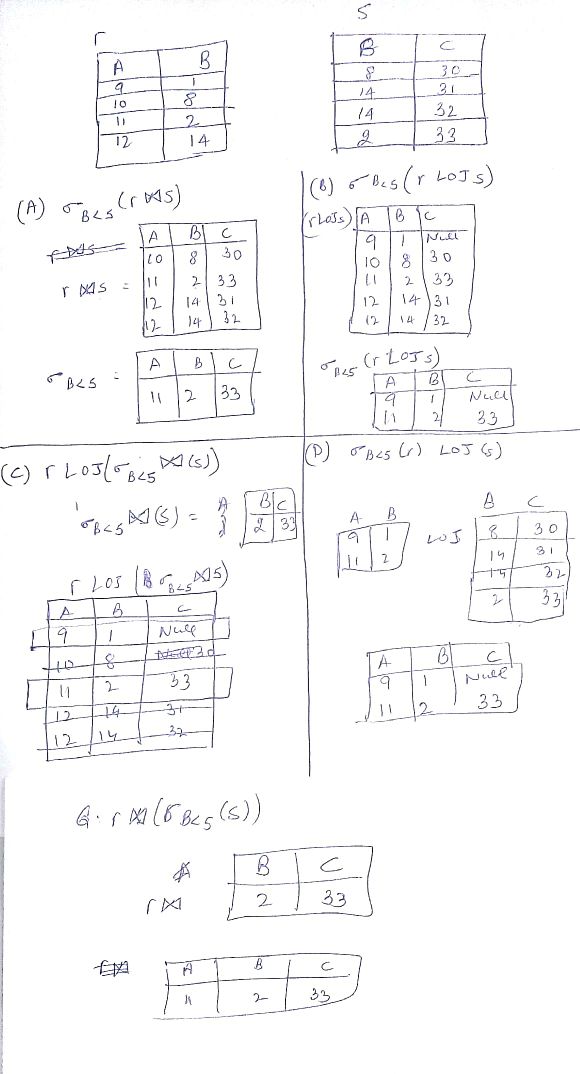 r
A B
9 1
10 8
11 2
12 14
S
B C
8 30
14 31
14 32
2 33
(A) σ B<5 (r ⋈ S)
r ⋈ S =
r ⋈ S =
A B C
10 8 30
11 2 33
12 14 31
12 14 32
σ B<5 =
A B C
11 2 33
(B) σ B<5 (r LOJ S)
(r LOJ s)
A B C
9 1 Null
10 8 30
11 2 33
12 14 31
12 14 32
σ B<5 (r LOJ s)
A B C
9 1 Null
11 2 33
(C) r LOJ (σ B<5 ⋈ (s))
σ B<5 ⋈ (S) =
B C
2 33
r LOJ (σ B<5 ⋈ S)
A B C
9 1 Null
10 8 30
11 2 33
12 14 31
12 14 32
(D) σ B<5 (r) LOJ (s)
A B
9 1
11 2
LOJ
B C
8 30
14 31
14 32
2 33
A B C
9 1 Null
11 2 33
Q. r ⋈ (σ B<5 (S))
r ⋈
B C
2 33
r ⋈
A B C
11 2 33